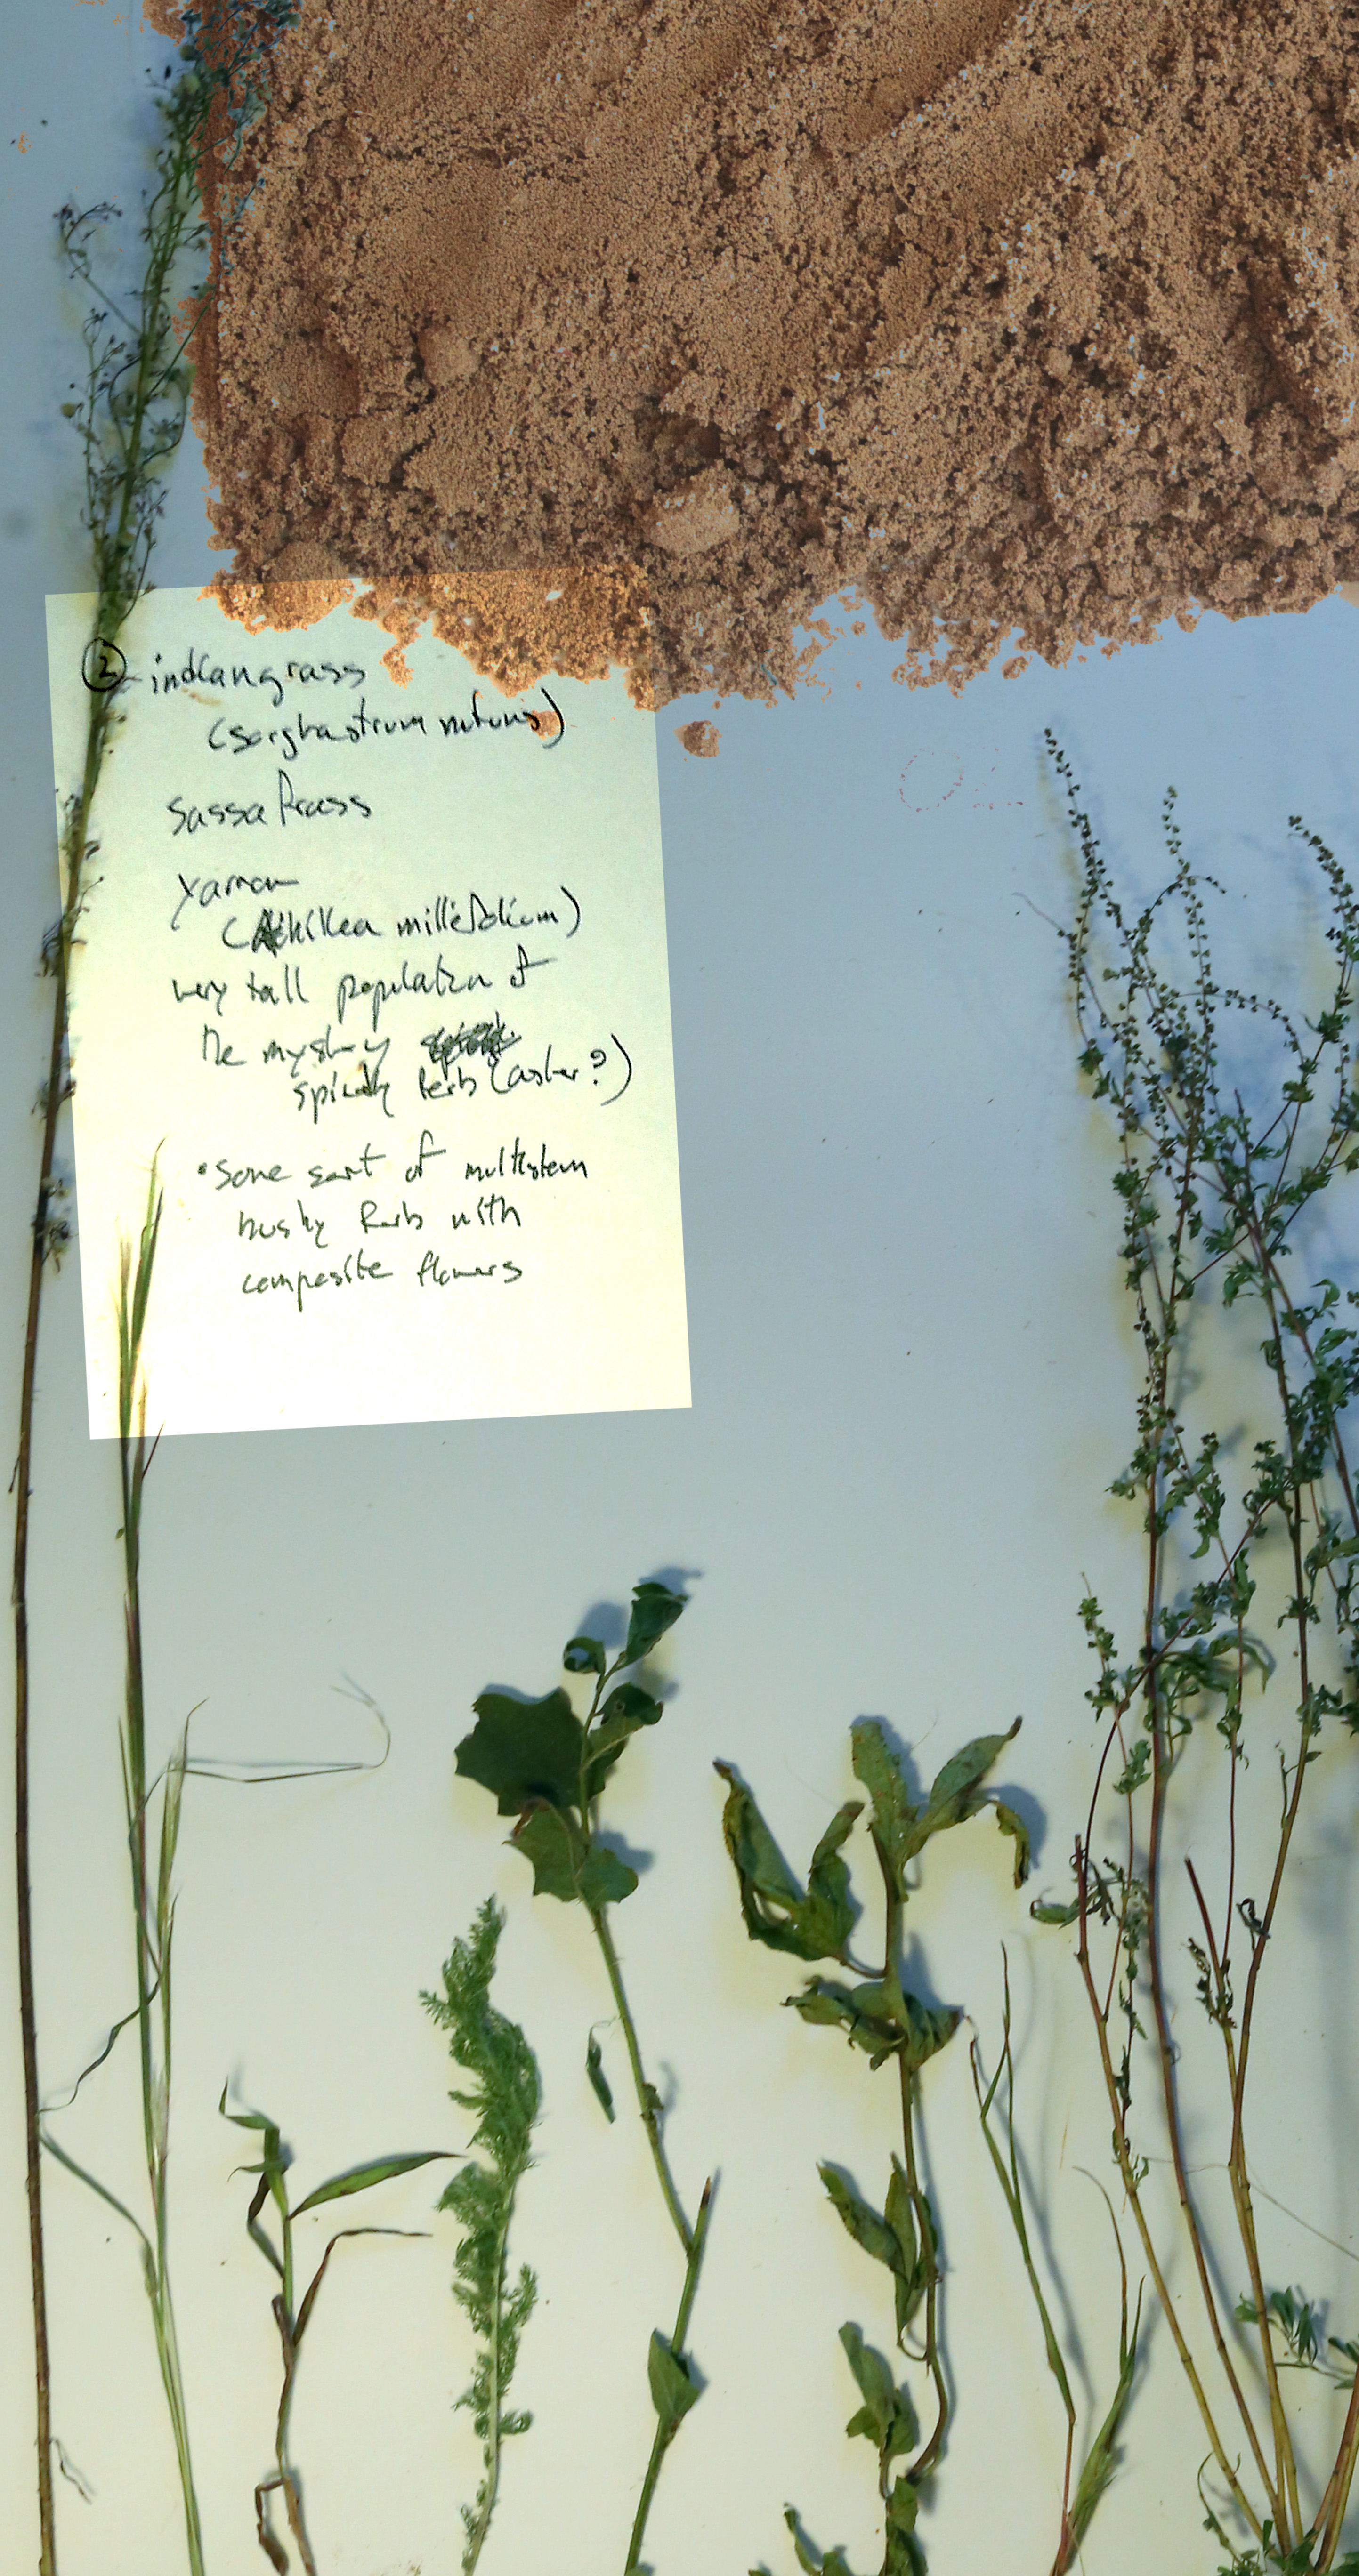 ② - indiangrass
(Sorghastrum nutans)
Sassafrass
Yarrow
(Achillea millefolium)
very tall population of
the mystery
spindly herb (aster?)
• some sort of multistem
bushy herb with
composite flowers